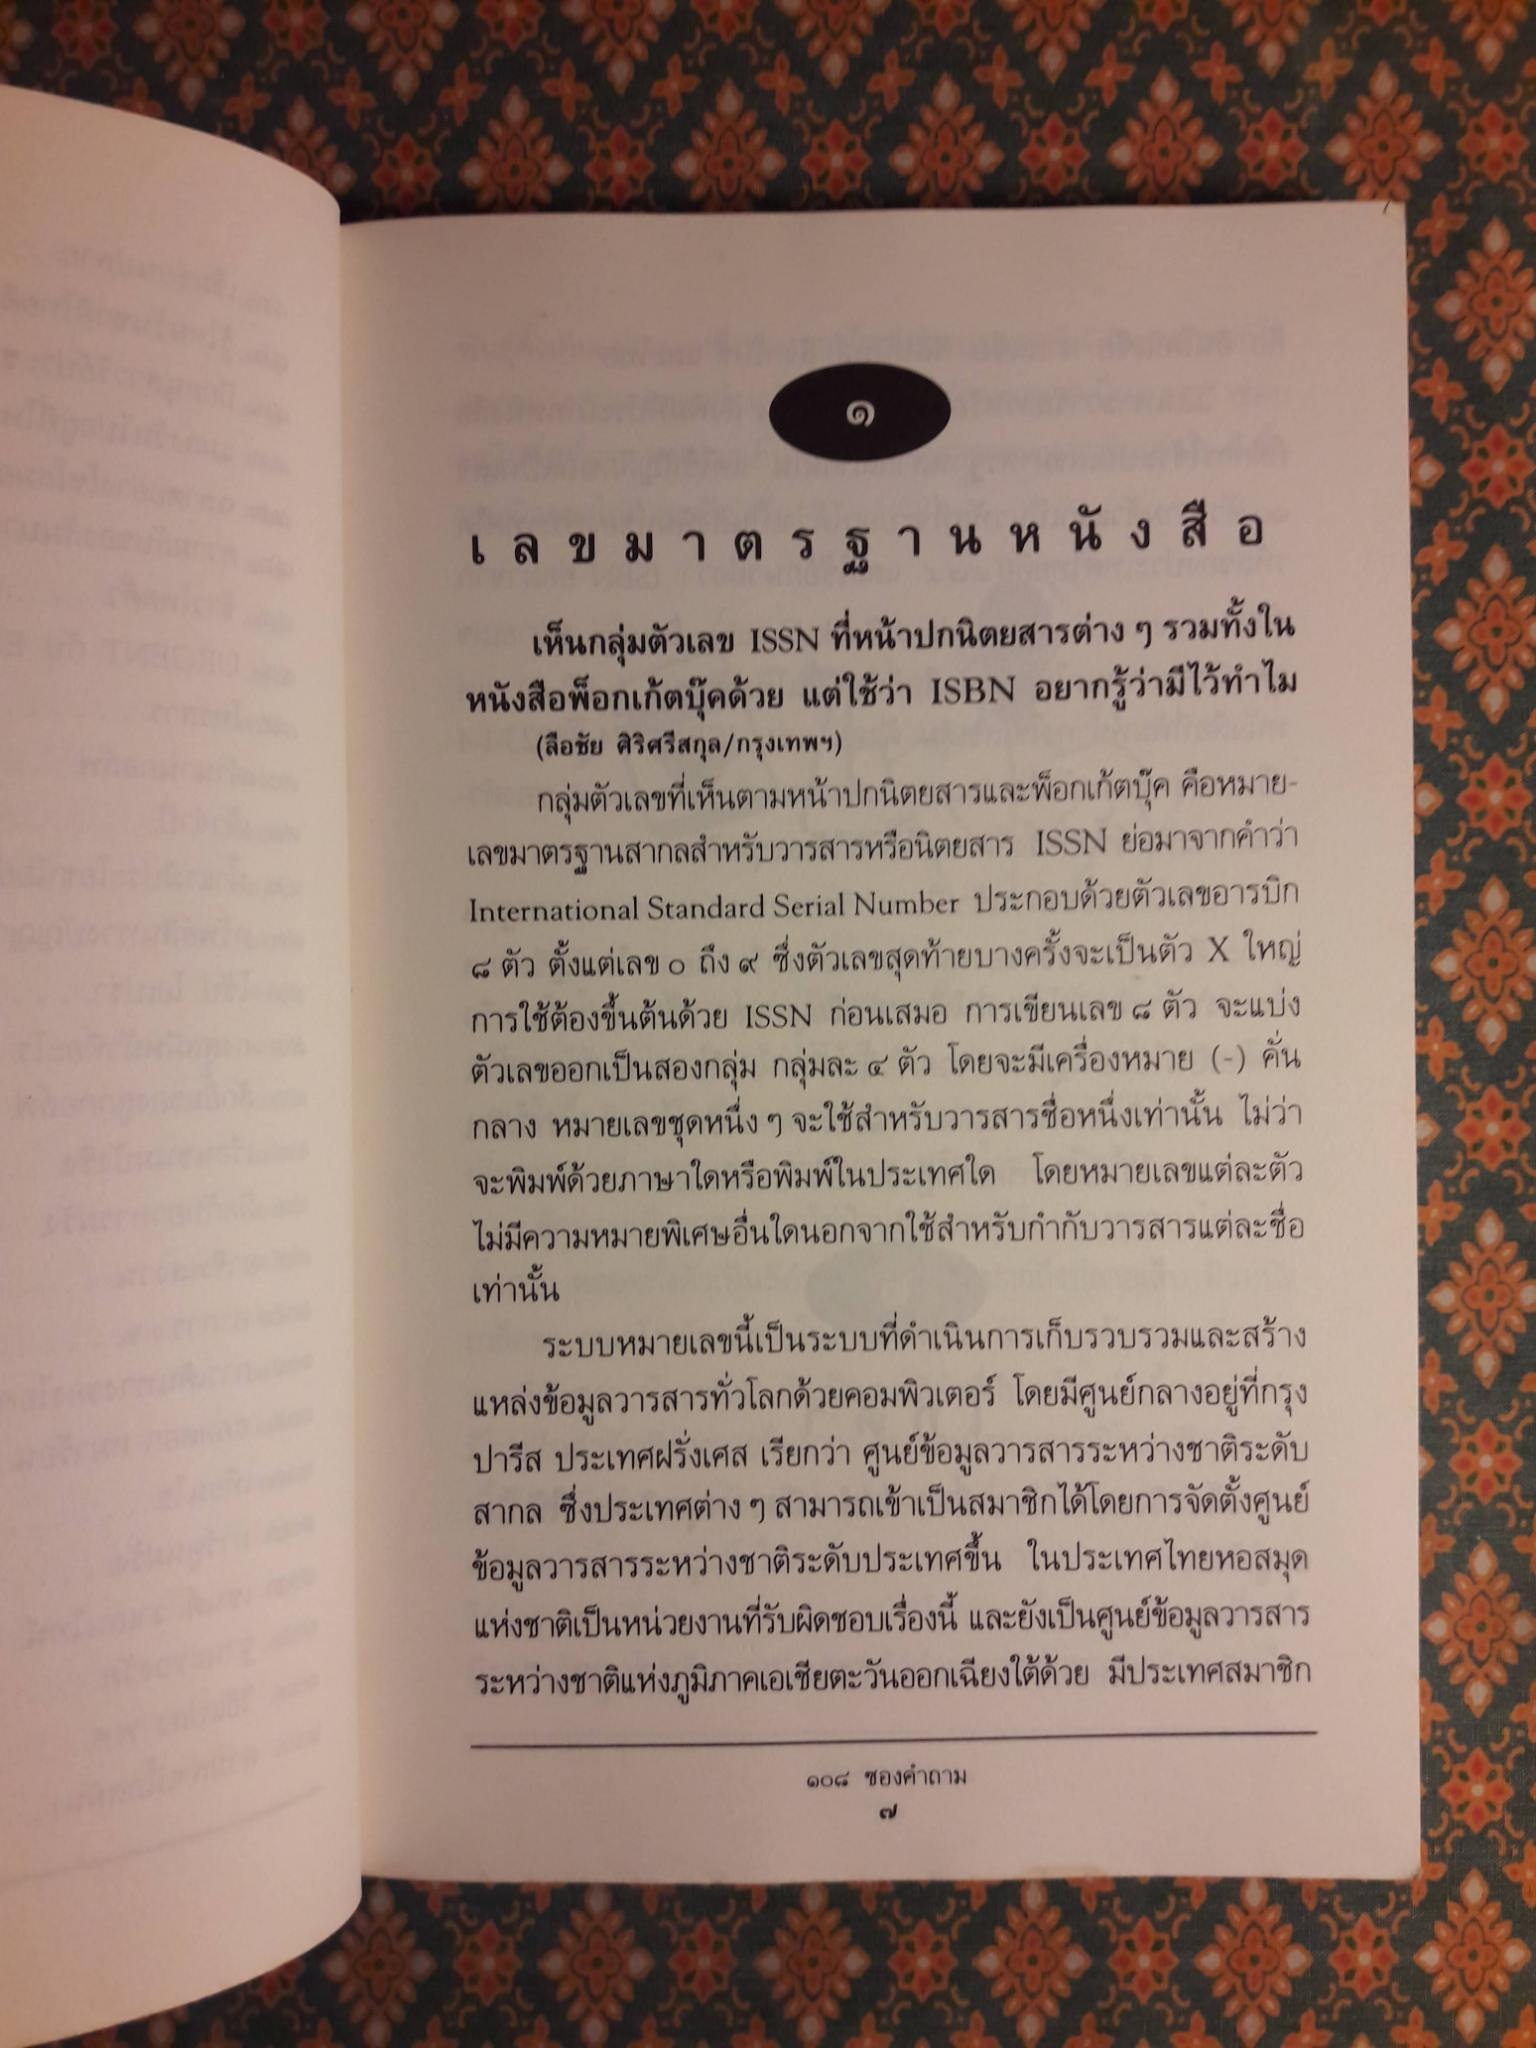 ๑
เลขมาตรฐานหนังสือ
เห็นกลุ่มตัวเลข ISSN ที่หน้าปกนิตยสารต่าง ๆ รวมทั้งใน
หนังสือพ็อกเก้ตบุ๊คด้วย แต่ใช้ว่า ISBN อยากรู้ว่ามีไว้ทำไม
(ลือชัย ศิริศรีสกุล/กรุงเทพฯ)
กลุ่มตัวเลขที่เห็นตามหน้าปกนิตยสารและพ็อกเก้ตบุ๊ค คือหมาย-
เลขมาตรฐานสากลสำหรับวารสารหรือนิตยสาร ISSN ย่อมาจากคำว่า
International Standard Serial Number ประกอบด้วยตัวเลขอารบิก
๘ ตัว ตั้งแต่เลข ๐ ถึง ๙ ซึ่งตัวเลขสุดท้ายบางครั้งจะเป็นตัว X ใหญ่
การใช้ต้องขึ้นต้นด้วย ISSN ก่อนเสมอ การเขียนเลข ๘ ตัว จะแบ่ง
ตัวเลขออกเป็นสองกลุ่ม กลุ่มละ ๔ ตัว โดยจะมีเครื่องหมาย (-) คั่น
กลาง หมายเลขชุดหนึ่ง ๆ จะใช้สำหรับวารสารชื่อหนึ่งเท่านั้น ไม่ว่า
จะพิมพ์ด้วยภาษาใดหรือพิมพ์ในประเทศใด โดยหมายเลขแต่ละตัว
ไม่มีความหมายพิเศษอื่นใดนอกจากใช้สำหรับกำกับวารสารแต่ละชื่อ
เท่านั้น
ระบบหมายเลขนี้เป็นระบบที่ดำเนินการเก็บรวบรวมและสร้าง
แหล่งข้อมูลวารสารทั่วโลกด้วยคอมพิวเตอร์ โดยมีศูนย์กลางอยู่ที่กรุง
ปารีส ประเทศฝรั่งเศส เรียกว่า ศูนย์ข้อมูลวารสารระหว่างชาติระดับ
สากล ซึ่งประเทศต่าง ๆ สามารถเข้าเป็นสมาชิกได้โดยการจัดตั้งศูนย์
ข้อมูลวารสารระหว่างชาติระดับประเทศขึ้น ในประเทศไทยหอสมุด
แห่งชาติเป็นหน่วยงานที่รับผิดชอบเรื่องนี้ และยังเป็นศูนย์ข้อมูลวารสาร
ระหว่างชาติแห่งภูมิภาคเอเชียตะวันออกเฉียงใต้ด้วย มีประเทศสมาชิก
๑๐๘ ซองคำถาม
๗